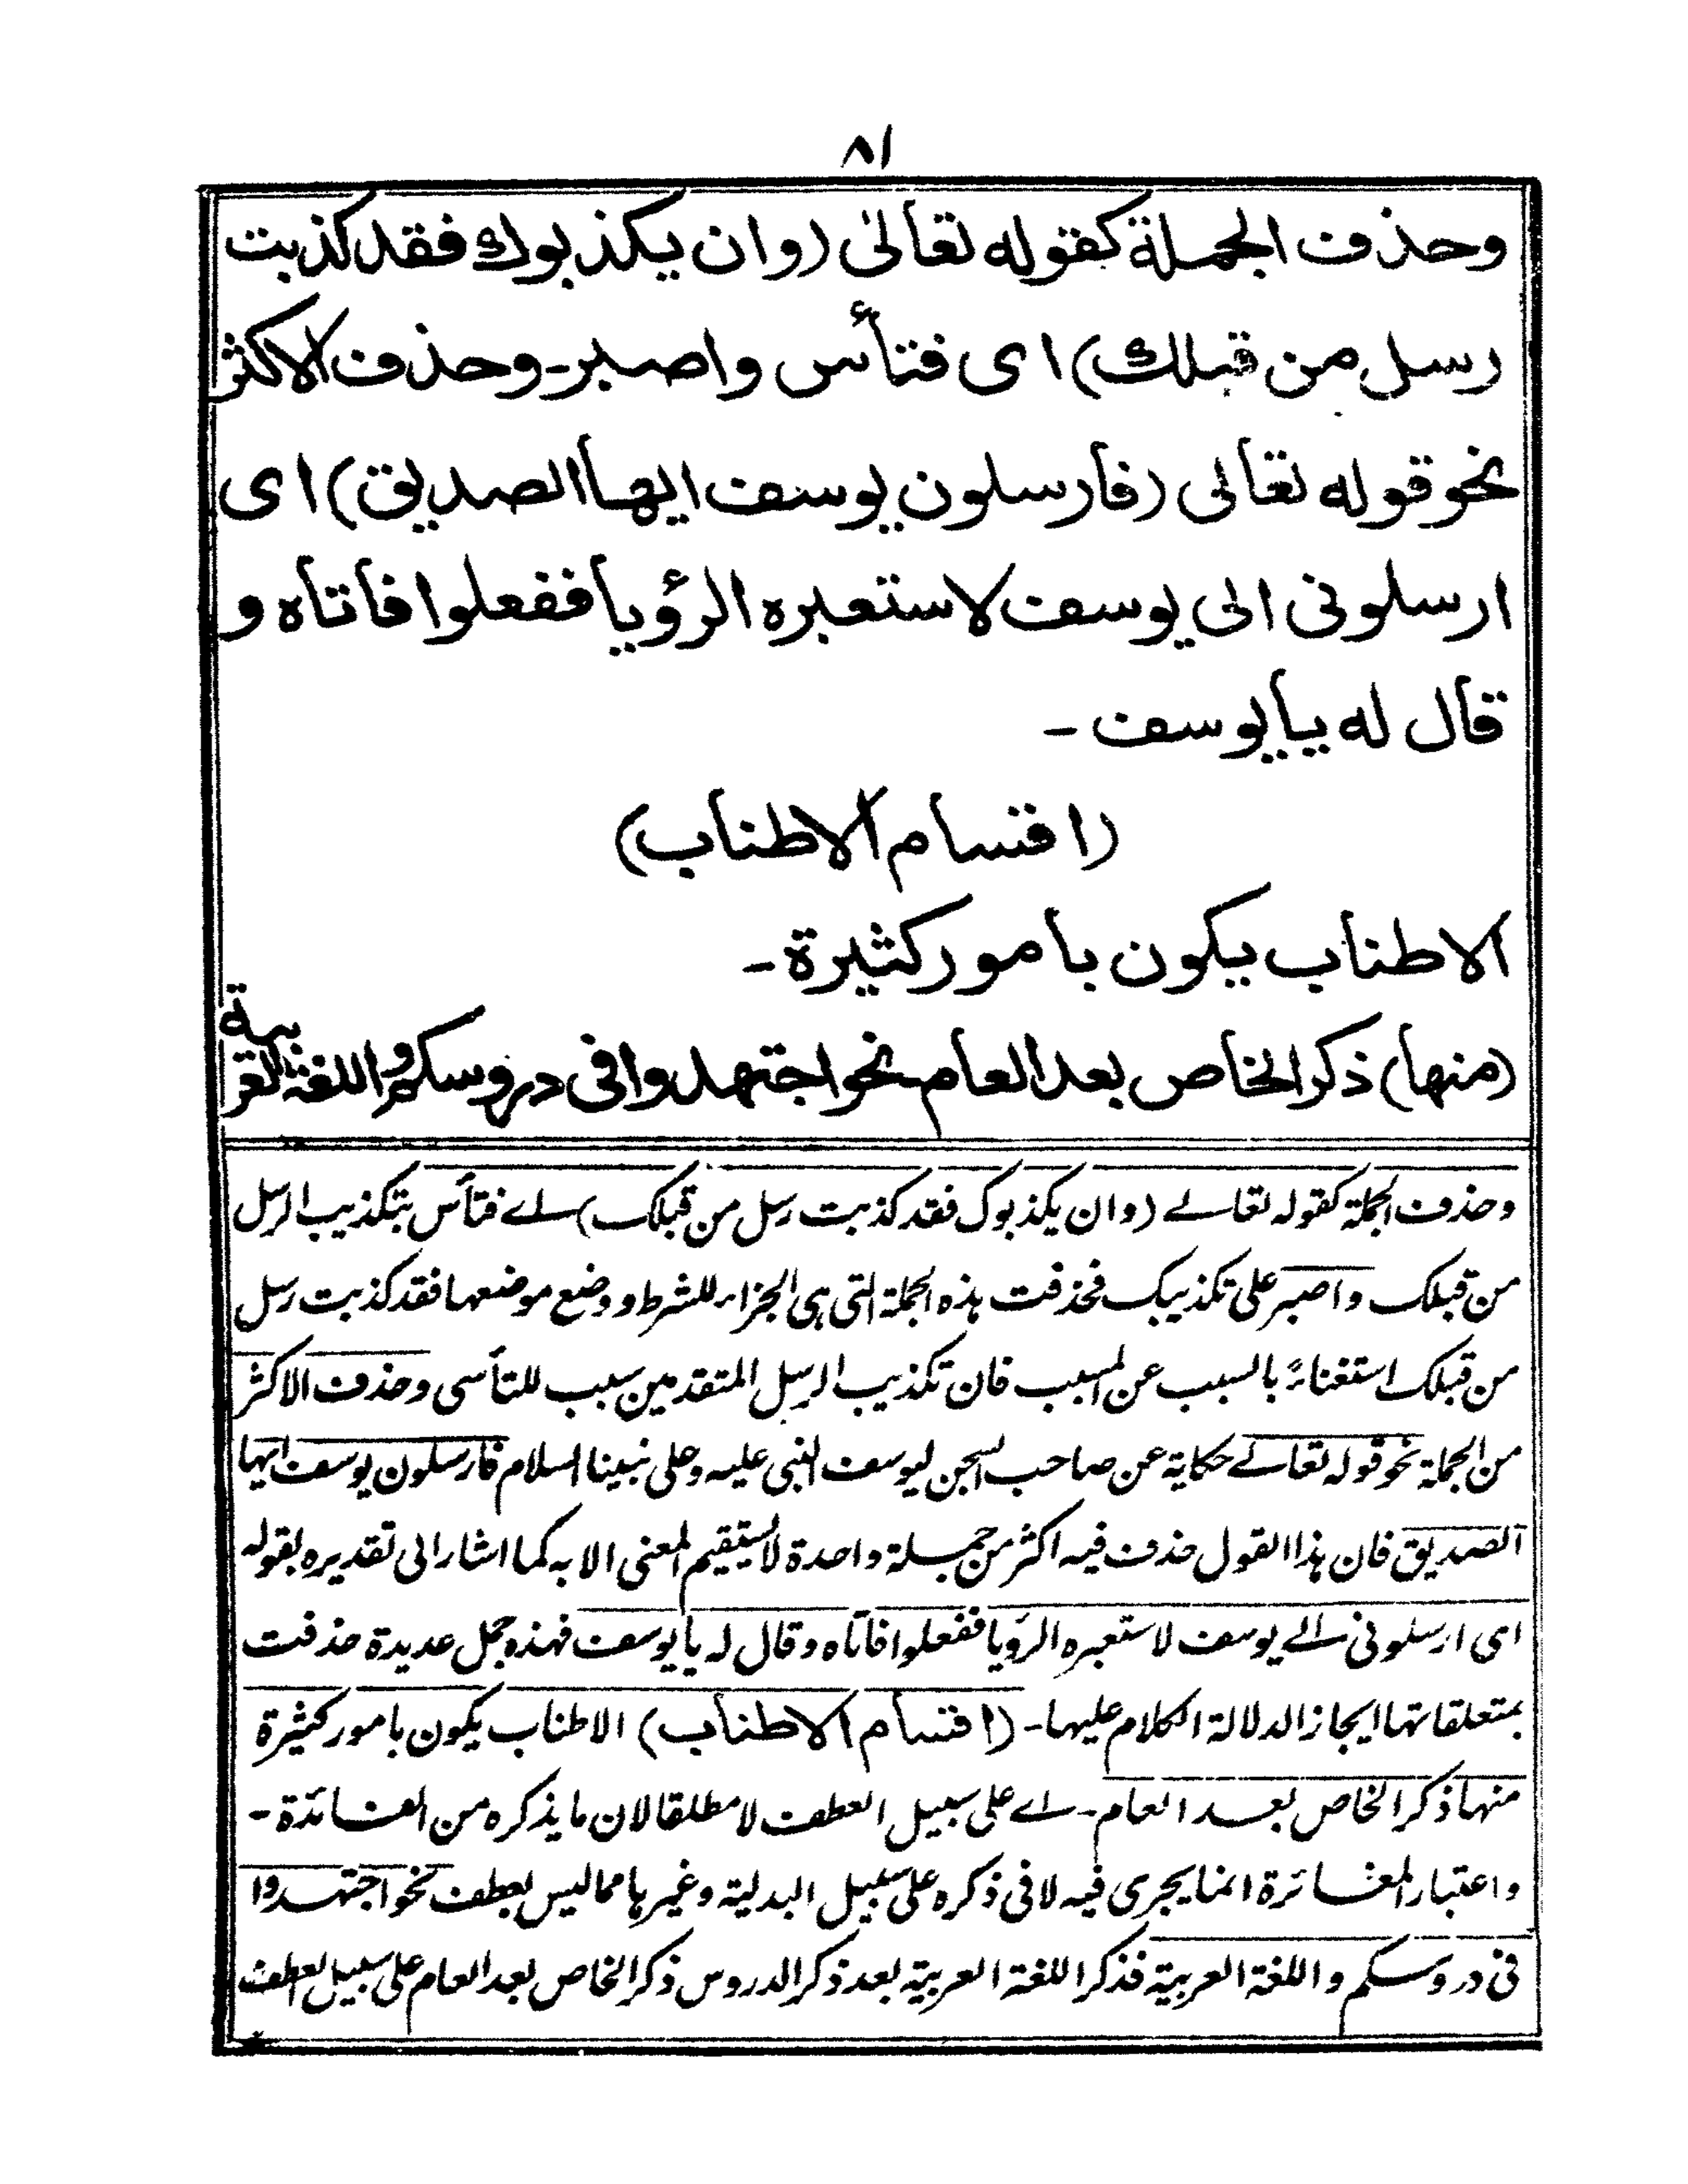 ٨١
وحذف الجملة كقوله تعالىٰ (وان يكذبوك فقد كذبت
رسل من قبلك) اى فتأس واصبر- وحذف الاكثر
نحو قوله تعالى (فارسلون يوسف ايها الصديق) اى
ارسلونى الى يوسف لاستعبره الرؤيا ففعلوا فاتاه و
قال له يا يوسف -
(اقسام الاطناب)
الاطناب يكون بامور كثيرة -
(منها) ذكر الخاص بعد العام نحو اجتهدوا فى دروسكم واللغة العربية
وحذف الجملة كقوله تعالے (وان يكذبوك فقد كذبت رسل من قبلك) اے فتأس بتكذيب الرسل
من قبلك واصبر على تكذيبك فحذفت هذه الجملة التى هى الجزاء للشرط ووضع موضعها فقد كذبت رسل
من قبلك استغناءً بالسبب عن المسبب فان تكذيب الرسل المتقدمين سبب للتأسى وحذف الاكثر
من الجملة نحو قوله تعالے حكاية عن صاحب السجن ليوسف النبى عليه وعلى نبينا السلام فارسلون يوسف ايها
الصديق فان هذا القول حذف فيه اكثر من جملة واحدة لا يستقيم المعنى الا به كما اشار الى تقديره بقوله
اى ارسلونى الے يوسف لاستعبره الرؤيا ففعلوا فاتاه وقال له يا يوسف فهذه جمل عديدة حذفت
بمتعلقاتها ايجازا لدلالة الكلام عليها- (اقسام الاطناب) الاطناب يكون بامور كثيرة
منها ذكر الخاص بعد العام- اے على سبيل العطف لا مطلقا لان ما يذكره من الفائدة -
واعتبار المغائرة انما يجرى فيه لا فى ذكره على سبيل البدلية وغيرها مما ليس بعطف نحو اجتهدوا
فى دروسكم واللغة العربية فذكر اللغة العربية بعد ذكر الدروس ذكر الخاص بعد العام على سبيل العطف